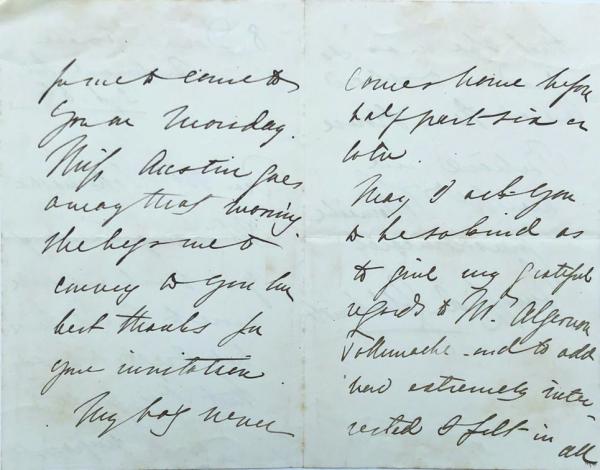 for me to come to
you on Monday.
Miss Austin goes
away that morning.
She begs me to
convey to you her
best thanks for
your invitation.
My boy never
comes home before
half past six or
later.
May I ask you
to be so kind as
to give my grateful
regards to Mr. Algernon
Tollemache - and to add
how extremely inter-
rested I felt in
all